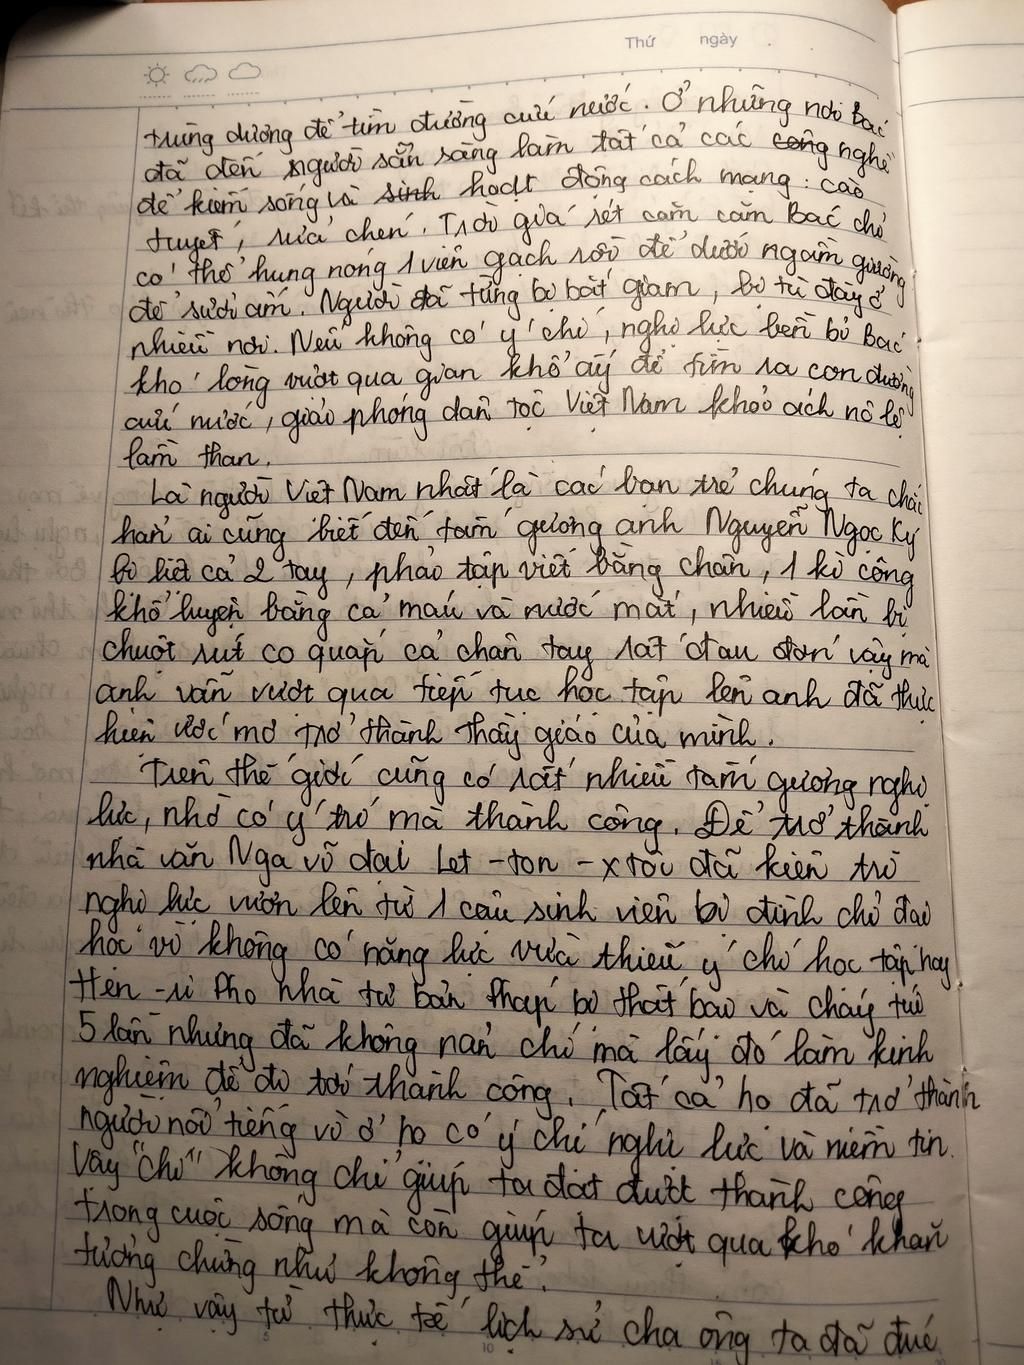 Thứ ngày
trùng dương để tìm đường cứu nước. Ở những nơi Bác
đã đến người sẵn sàng làm tất cả các công nghề
để kiếm sống và sinh hoạt động cách mạng: cào
tuyết, rửa chén. Trời giá rét căm căm Bác chỉ
có thể hung nóng 1 viên gạch rồi để dưới ngầm giường
để sưởi ấm. Người đã từng bị bắt giam, bị tù đày ở
nhiều nơi. Nếu không có ý chí, nghị lực bền bỉ Bác
khó lòng vượt qua gian khổ ấy để tìm ra con đường
cứu nước, giải phóng dân tộc Việt Nam khỏi ách nô lệ
lầm than.
Là người Việt Nam nhất là các bạn trẻ chúng ta chắc
hẳn ai cũng biết đến tấm gương anh Nguyễn Ngọc Ký
bị liệt cả 2 tay, phải tập viết bằng chân, 1 kì công
khổ luyện bằng cả máu và nước mắt, nhiều lần bị
chuột rút co quắp cả chân tay rất đau đớn vậy mà
anh vẫn vượt qua tiếp tục học tập lên anh đã thực
hiện ước mơ trở thành thầy giáo của mình.
Trên thế giới cũng có rất nhiều tấm gương nghị
lực, nhờ có ý trí mà thành công. Để trở thành
nhà văn Nga vĩ đại Let-ton-xtôi đã kiên trì
nghị lực vươn lên từ 1 cậu sinh viên bị đình chỉ đại
học vì không có năng lực vừa thiếu ý chí học tập hay
Hen-ri Pho nhà tư bản Pháp bị thất bại và cháy túi
5 lần nhưng đã không nản chí mà lấy đó làm kinh
nghiệm để đi tới thành công. Tất cả họ đã trở thành
người nổi tiếng vì ở họ có ý chí nghị lực và niềm tin.
Vậy "chí" không chỉ giúp ta đạt được thành công
trong cuộc sống mà còn giúp ta vượt qua khó khăn
tưởng chừng như không thể.
Như vậy từ thực tế lịch sử cha ông ta đã đúc
10